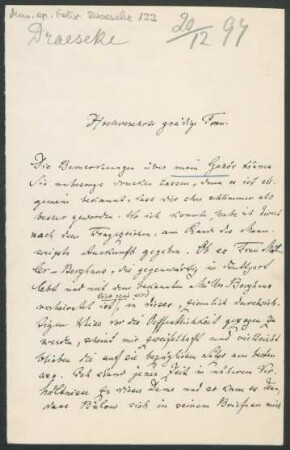 Mus. ep. Felix Draeseke 133
Draeseke
20/12 97
Hochverehrte gnädige Frau.
Die Bemerkungen über mein Gehör können
Sie unbesorgt drucken lassen, denn es ist all-
gemein bekannt, dass dies eher schlimmer als
besser geworden. Wo ich konnte habe ich direct
nach dem Fragezeichen, am Rande des Manu-
scripts Auskunft gegeben. Ob es Frau Mül-
ler-Berghaus, die gegenwärtig in Stuttgart
lebt und mit dem bekannten Müller Berghaus
verheiratet ist, in dieser, ziemlich
Weise vor die Oeffentlichkeit gezogen zu
werden, scheint mir zweifelhaft und vielleicht
blieben die auf sie bezüglichen am besten
weg. Ich stand jener Zeit in näheren Ver-
hältnissen zu dieser Dame und so kam es denn,
dass Bülow sich in seinen Briefen mit